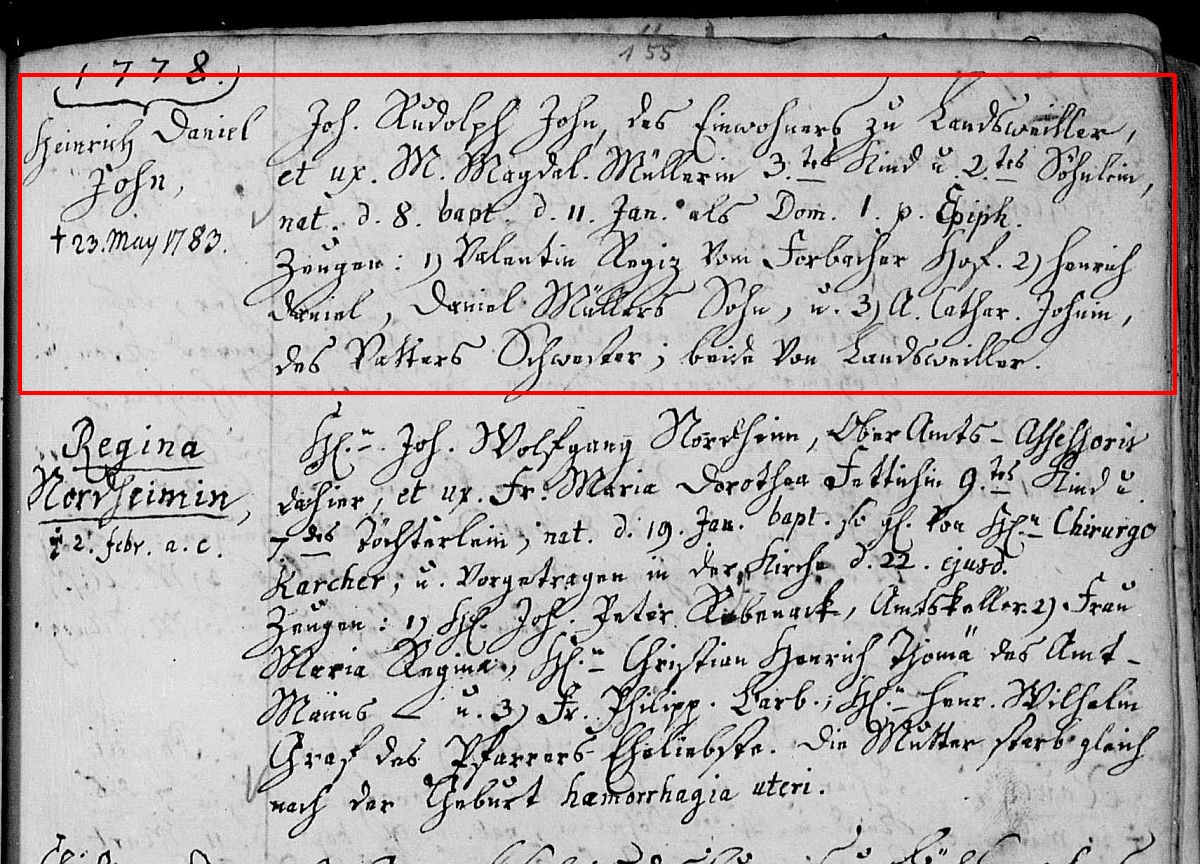 155
1778.
Heinrich Daniel
John,
† 23. May 1783.
Joh. Rudolph John, des Einwohners zu Landsweiller,
et ux. M. Magdal. Müllerin 3.tes Kind u. 2.tes Söhnlein,
nat. d. 8. bapt. d. 11. Jan. als Dom. 1. p. Epiph.
Zeugen: 1) Valentin Regiz vom Forbacher Hof. 2) Henrich
Daniel, Daniel Müllers Sohn, u. 3) A. Cathar. Johnin,
des Vatters Schwester; beide von Landsweiller.
Regina
Nordheimin,
† 2. febr. a. c.
H. Joh. Wolfgang Nordheim, Ober Amts-Assessoris
dahier, et ux. Fr. Maria Dorothea Fettichin 9.tes Kind u.
7des Töchterlein; nat. d. 19. Jan. bapt. so gl. von H. Chirurgo
Karcher, u. vorgetragen in der Kirche d. 22. ejusd.
Zeugen: 1) H. Joh. Peter Rebenack, Amtskeller 2) Frau
Maria Regina, H. Christian Henrich Thomä des Amt-
Manns – u. 3) Fr. Philipp. Barb., H. Henr. Wilhelm
Graf des Pfarrers Eheliebste. Die Mutter starb gleich
nach der Geburt hæmorrhagia uteri.